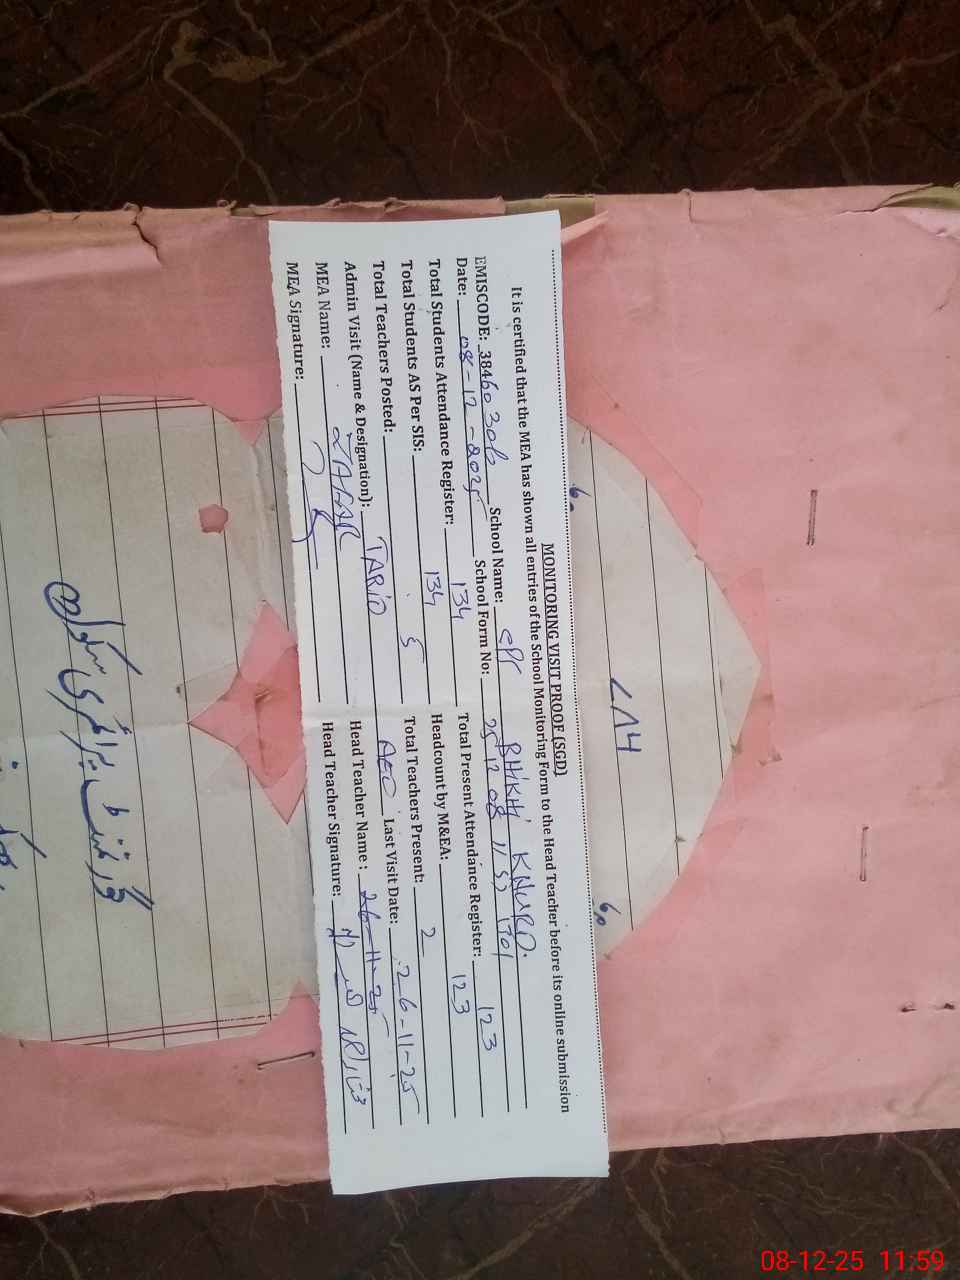 MONITORING VISIT PROOF (SGD)
It is certified that the MEA has shown all entries of the School Monitoring Form to the Head Teacher before its online submission
EMISCODE: 38460306 School Name: GPS BHIKHI KHURD.
Date: 08-12-2025 School Form No: 25 12 08 11 57 1701
Total Students Attendance Register: 134 Total Present Attendance Register: 123
Total Students AS Per SIS: 134 Headcount by M&EA: 123
Total Teachers Posted: 5 Total Teachers Present: 2
Admin Visit (Name & Designation): TARIQ AEO Last Visit Date: 26-11-25
MEA Name: ZAFAR Head Teacher Name : 26-11-25 مختار احمد
MEA Signature: Head Teacher Signature:
گورنمنٹ پرائمری سکول
08-12-25 11:59